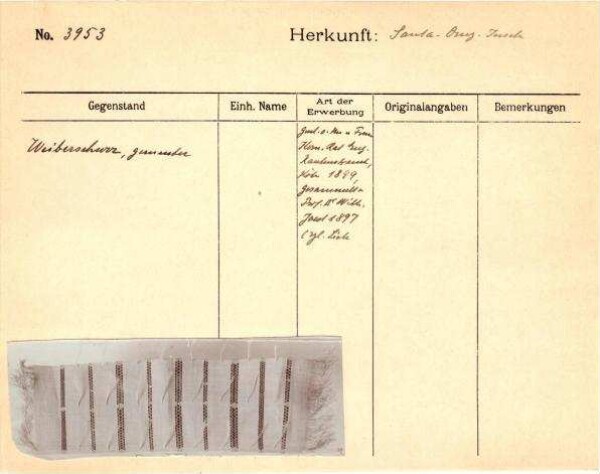 No. 3953
Herkunft: Santa-Cruz-Inseln
Gegenstand
Einh. Name
Art der Erwerbung
Originalangaben
Bemerkungen
Weiberschurz, gemustert
Gesch. v. Hrn u Frau
Eug.
Rautenstrauch,
Köln 1899,
gesammelt v.
Prof. Dr Wilh.
Joest 1897
(vgl. Liste